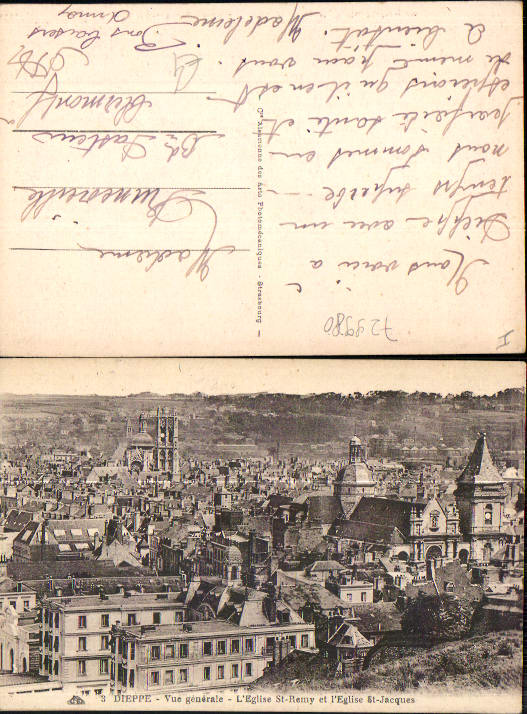 Nous voici à
Dieppe avec un
temps superbe —
nous sommes en
parfaite santé et
espérons qu'il en est
de même pour vous.
à bientôt. Madeleine
Bons baisers
Cie Alsacienne des Arts Photomécaniques - Strasbourg
Madame
Bd Pasteur
729980
I
3 DIEPPE - Vue générale - L'Eglise St-Remy et l'Eglise St-Jacques